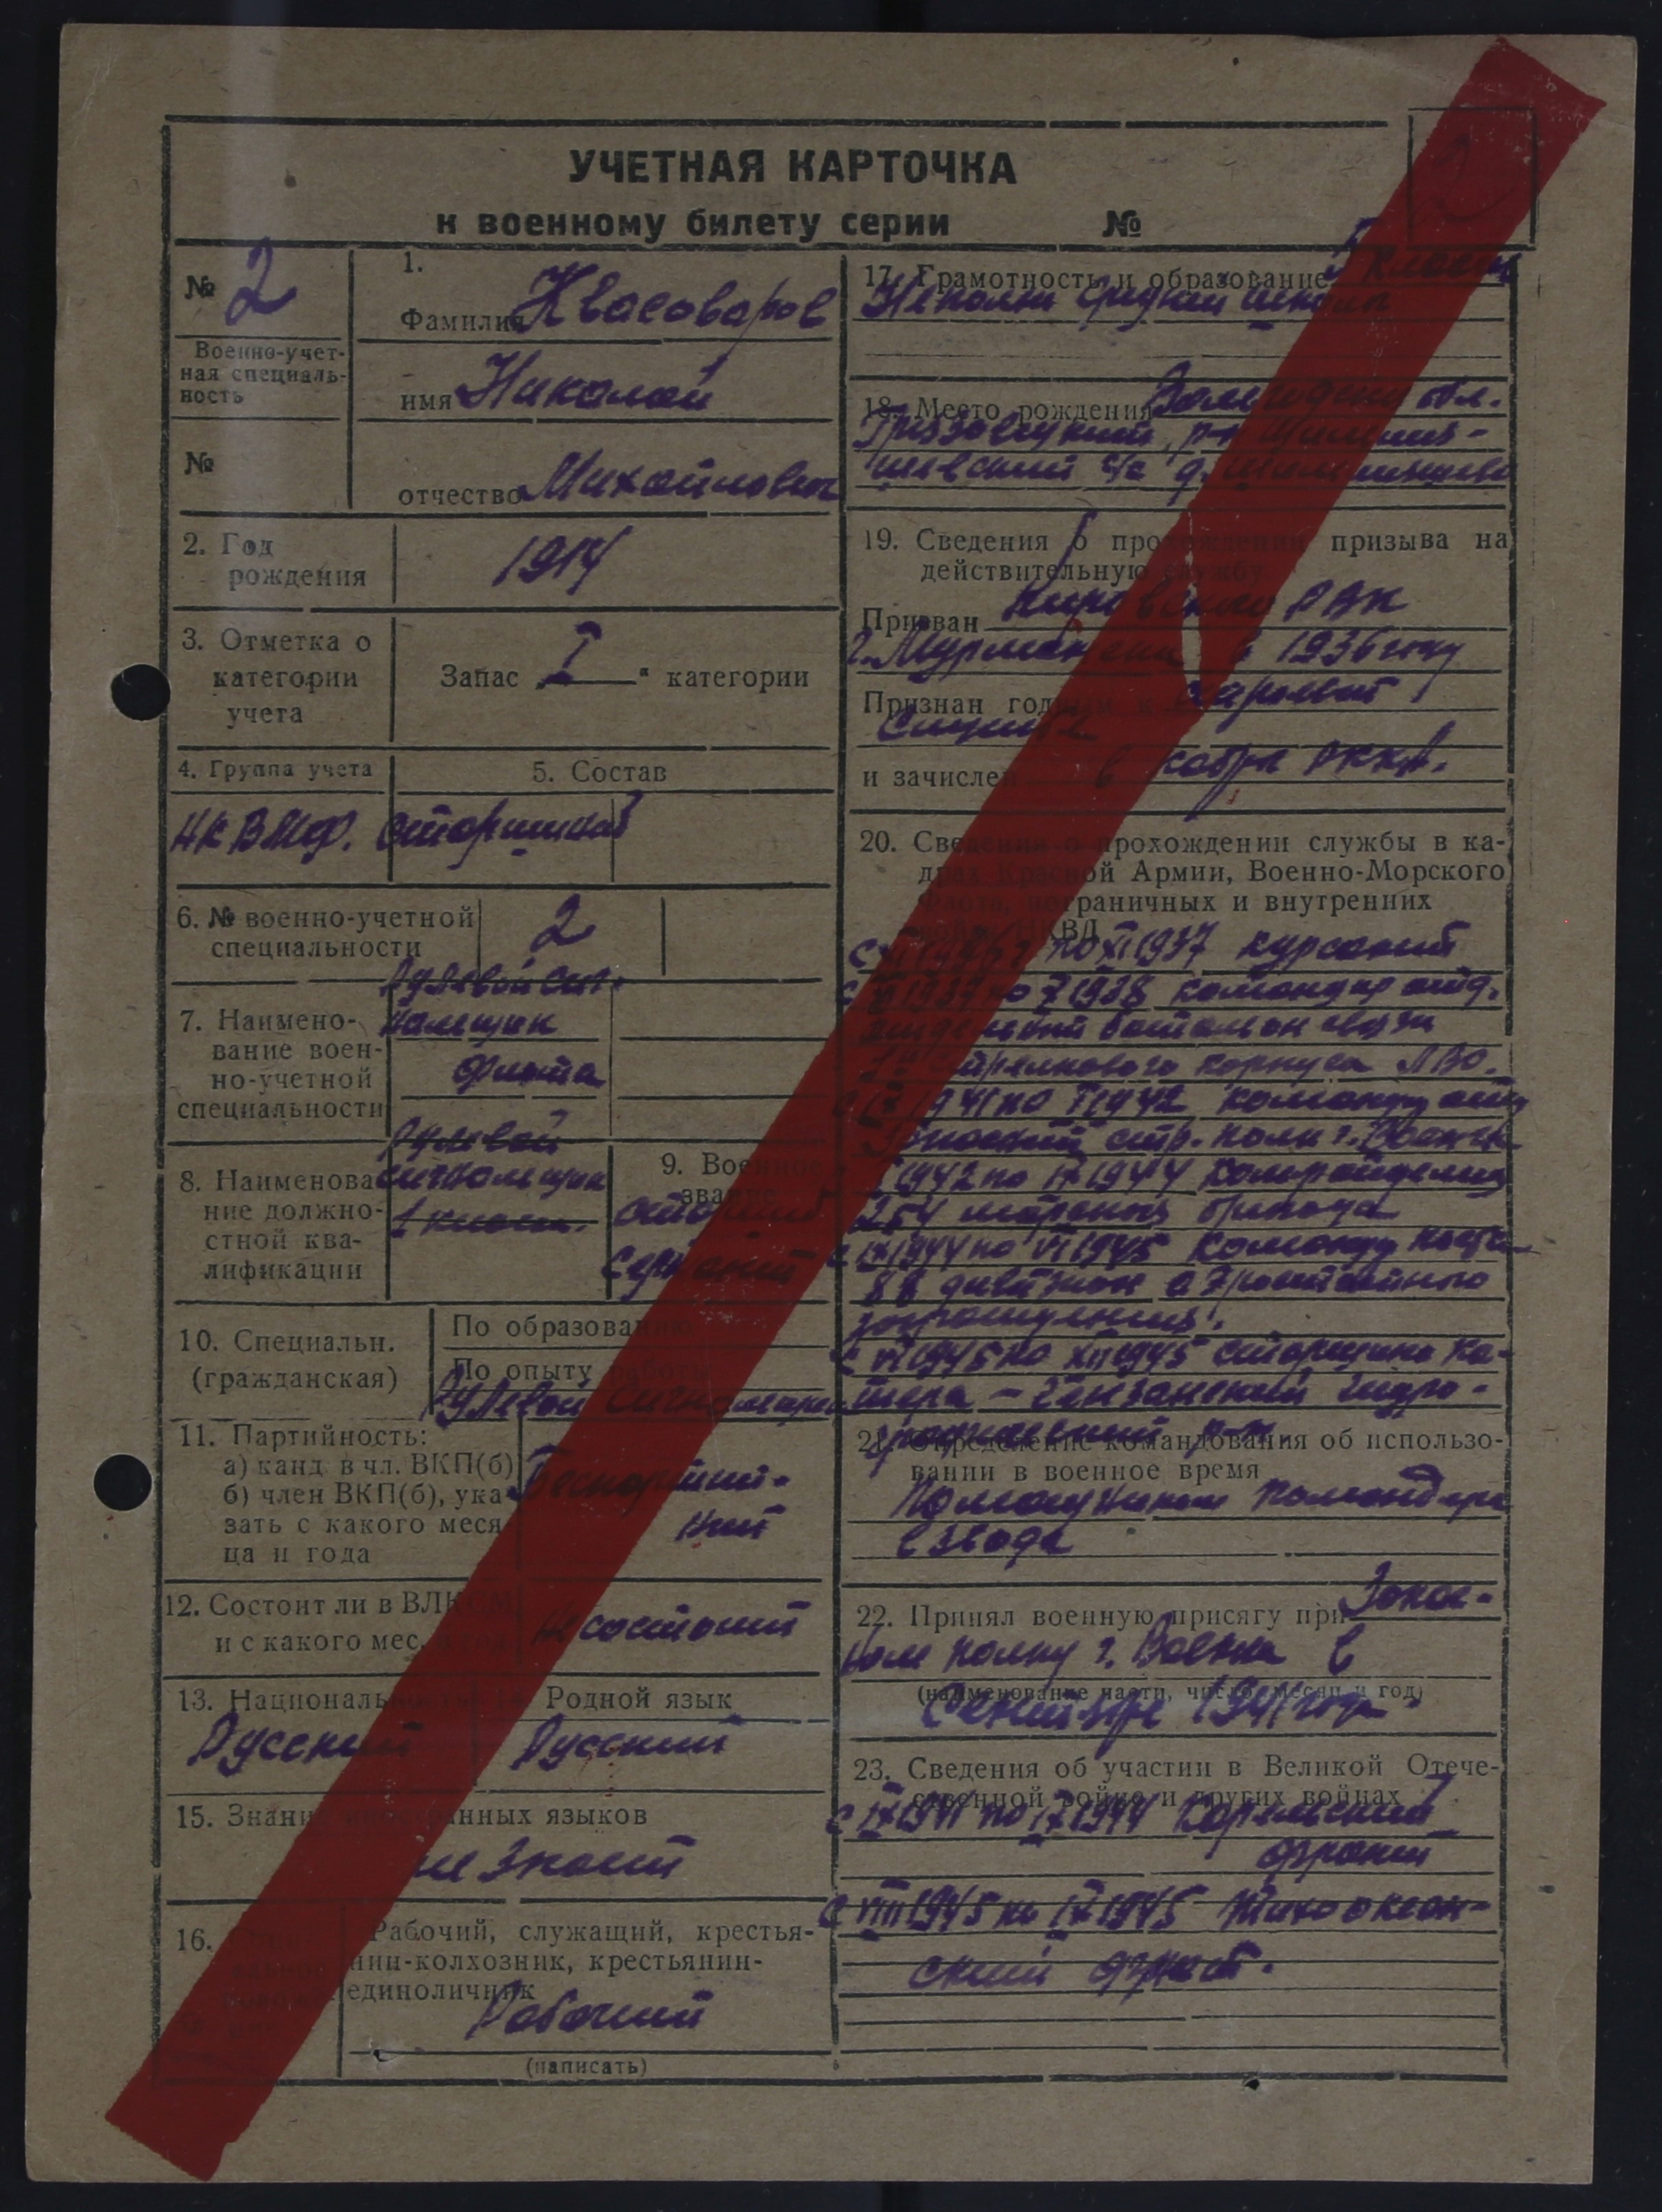 УЧЕТНАЯ КАРТОЧКА
к военному билету серии №
№ 2
Военно-учет-
ная специаль-
ность
№
1.
Фамилия Квасоваров
имя Николай
отчество Михайлович
2. Год
рождения
1914
3. Отметка о
категории
учета
Запас „I“ категории
4. Группа учета
5. Состав
НК ВМФ. Старшинский
6. № военно-учетной
специальности
2
7. Наимено-
вание воен-
но-учетной
специальности
Рулевой сиг-
нальщик
флота
8. Наименова-
ние должно-
стной ква-
лификации
Рулевой
сигнальщик
1 класса.
9. Военное
звание
Старший
Сержант
10. Специальн.
(гражданская)
По образованию
По опыту работы
Рулевой
11. Партийность:
а) канд. в чл. ВКП(б)
б) член ВКП(б), ука-
зать с какого меся-
ца и года
Беспартий-
ный
12. Состоит ли в ВЛКСМ
и с какого мес. и года
Не состоит
13. Национальность
Русский
14. Родной язык
Русский
15. Знание иностранных языков
не знает
16.
Рабочий, служащий, крестья-
нин-колхозник, крестьянин-
единоличник
Рабочий
(написать)
17. Грамотность и образование 5 классов
Неполн средней школы
18. Место рождения Вологодская обл.
Грязовецкий р-н
с/с д.
19. Сведения о прохождении призыва на
действительную службу
Призван Кировским РВК
г. Мурманска в 1936 году
Признан годным к строевой
Службе
и зачислен в кадры РККА.
20. Сведения о прохождении службы в ка-
драх Красной Армии, Военно-Морского
Флота, пограничных и внутренних
войск НКВД
по XI 1937 курсант
с XI 1937 по X 1938 командир отд.
отдельный батальон связи
стрелкового корпуса ЛВО.
1941 по V 1942 командир отд
Запасный стр. полк г.
1942 по IX 1944 Ком. отделения
254 морской бригада
с IX 1944 по VI 1945 Команд
88 дивизион аэростатного
заграждения.
с VI 1945 по XII 1945 старшина ка-
тера – Гензанский гидро-
р-н.
21. Определение командования об использо-
вании в военное время
Помощником командира
взвода
22. Принял военную присягу при Запас-
ном полку г. в
(наименование части, число, месяц и год)
Сентябре 1941 года
23. Сведения об участии в Великой Отече-
ственной войне и других войнах
с IX 1941 по IX 1944 Карельский
фронт
с VIII 1945 по IX 1945 Тихоокеан-
ский флот.